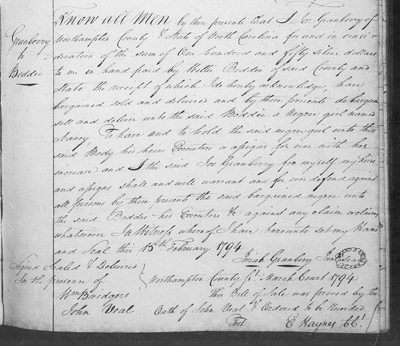 Granberry
to
Boddie
Know all Men by these presents that I Jos Granberry of
Northampton County & State of North Carolina for and in consi-
deration of the sum of One hundred and fifty silver dollars
to me in hand paid by Boddie of said County and
State the receipt of which I do hereby acknowledge, have
bargained sold and delivered and by these presents do bargain
sell and deliver unto the said Boddie a Negro girl named
To have and to hold the said negro girl unto the
said his heirs Executors & assigns for ever with her
increase and I the said Jos Granberry for myself my heirs
and assigns shall and will warrant and for ever defend against
all persons by these presents the said bargained negro unto
the said Boddie his Executors &c against any claim or claims
whatsoever In Witness whereof I have hereunto set my hand
and Seal this 15th February 1794
Josiah Granberry
Signed Sealed & Delivered
In the presence of
Wm Bridgers
John Veal
Northampton County March Court 1794
This Bill of Sale was proved by the
Oath of John Veal & Ordered to be Recorded
Test E Haynes CC